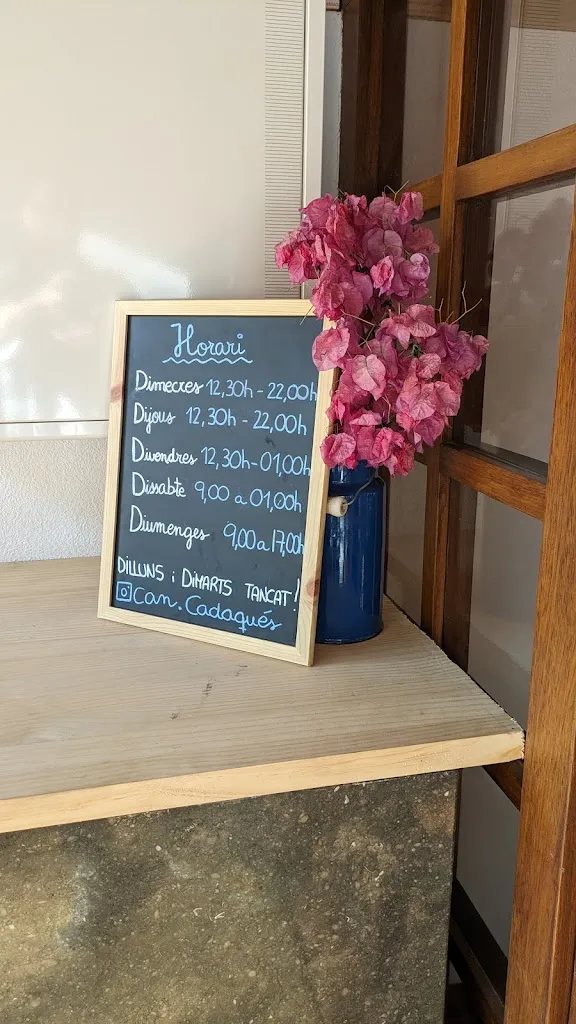 Horari
Dimecres 12,30h - 22,00h
Dijous 12,30h - 22,00h
Divendres 12,30h - 01,00h
Dissabte 9,00 a 01,00h
Diumenges 9,00 a 17,00h
DILLUNS i DIMARTS TANCAT!
Can.Cadaqués